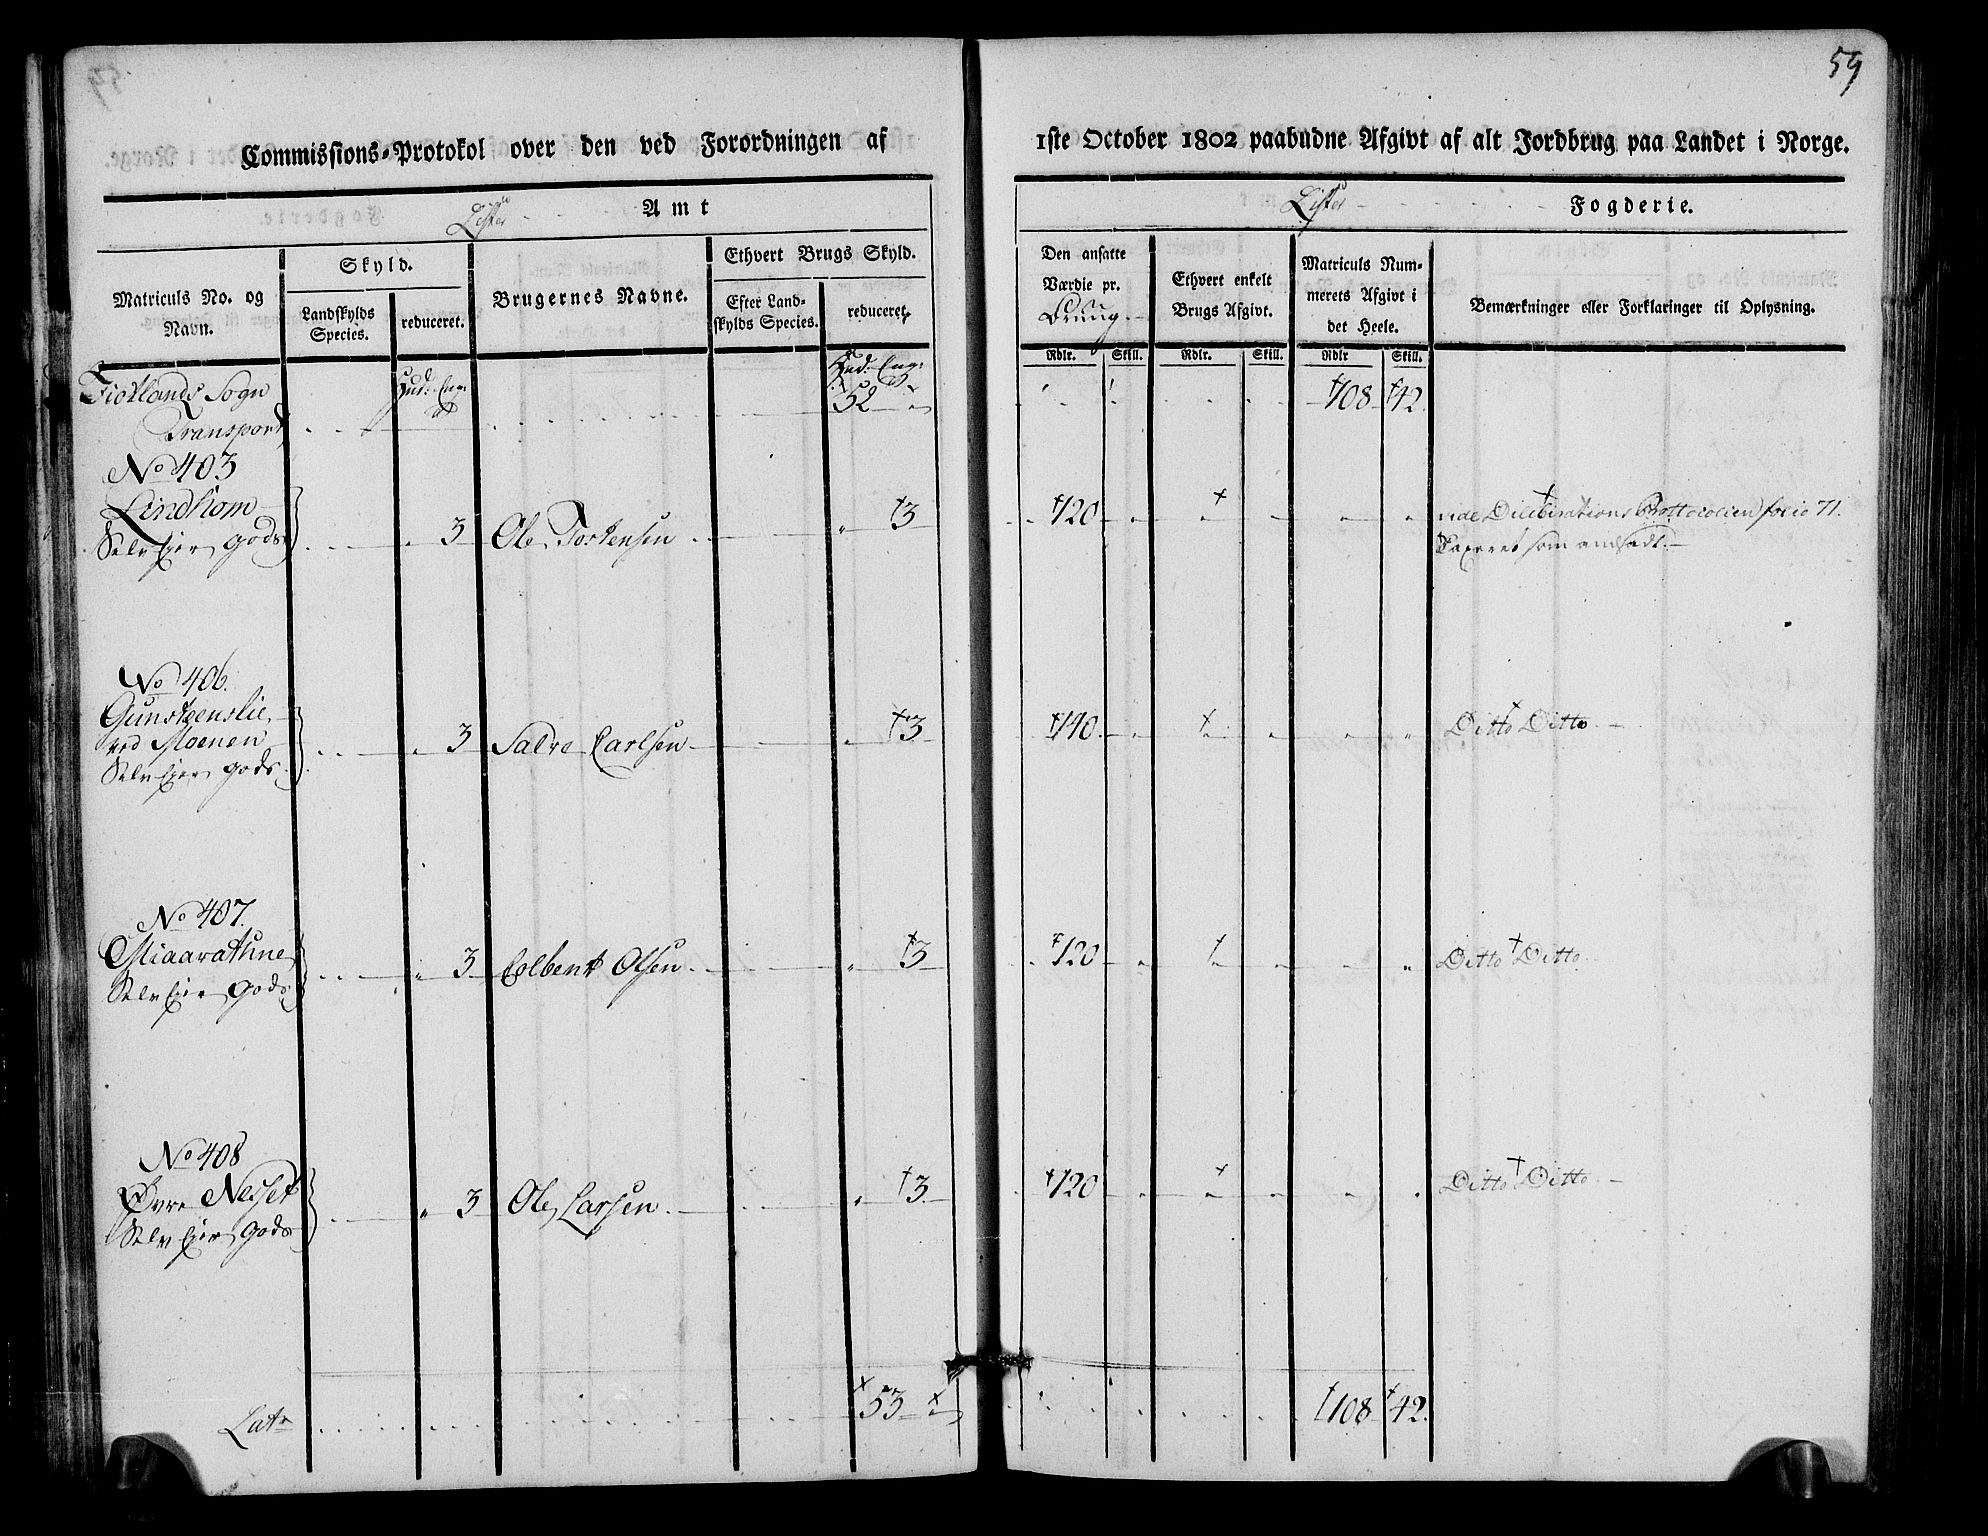 59
Commissions-Protokol over den ved Forordningen af
1ste October 1802 paabudne Afgivt af alt Jordbrug paa Landet i Norge.
Lister Amt
Lister Fogderie.
Matriculs No. og Navn.
Skyld.
Landskylds Species.
reduceret.
Brugernes Navne.
Ethvert Brugs Skyld.
Efter Landskylds Species.
reduceret.
Den ansatte Værdie pr.
Ethvert enkelt Brugs Afgivt.
Matriculs Nummerets Afgivt i det Heele.
Bemærkninger eller Forklaringer til Oplysning.
Rdlr. Skill. Rdlr. Skill. Rdlr Skill.
Fiotlands Sogn Hud: Eng: Hud: Eng:
Transport 52 108 42.
No 403
Lindhom
Selv Eier Gods 3 Ole Torkensen 3 120 vide Deliberations Prottocolen folio 71.
Taxeret som andsadt.
No 406.
Gunsteenslie
ved Moenen 3 Salve Carlsen 3 140 Ditto Ditto
Selv Eier Gods
No 407.
Miaarathne 3 Colbent Olsen 3 120 Ditto Ditto
Selv Eier Gods
No 408
Øvre Nesset 3 Ole Larsen 3 120 Ditto Ditto
Selv Eier Gods
Lat 53 108 42.